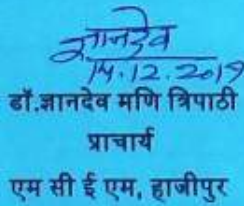 ज्ञानदेव
14.12.2019
डॉ.ज्ञानदेव मणि त्रिपाठी
प्राचार्य
एम सी ई एम, हाजीपुर